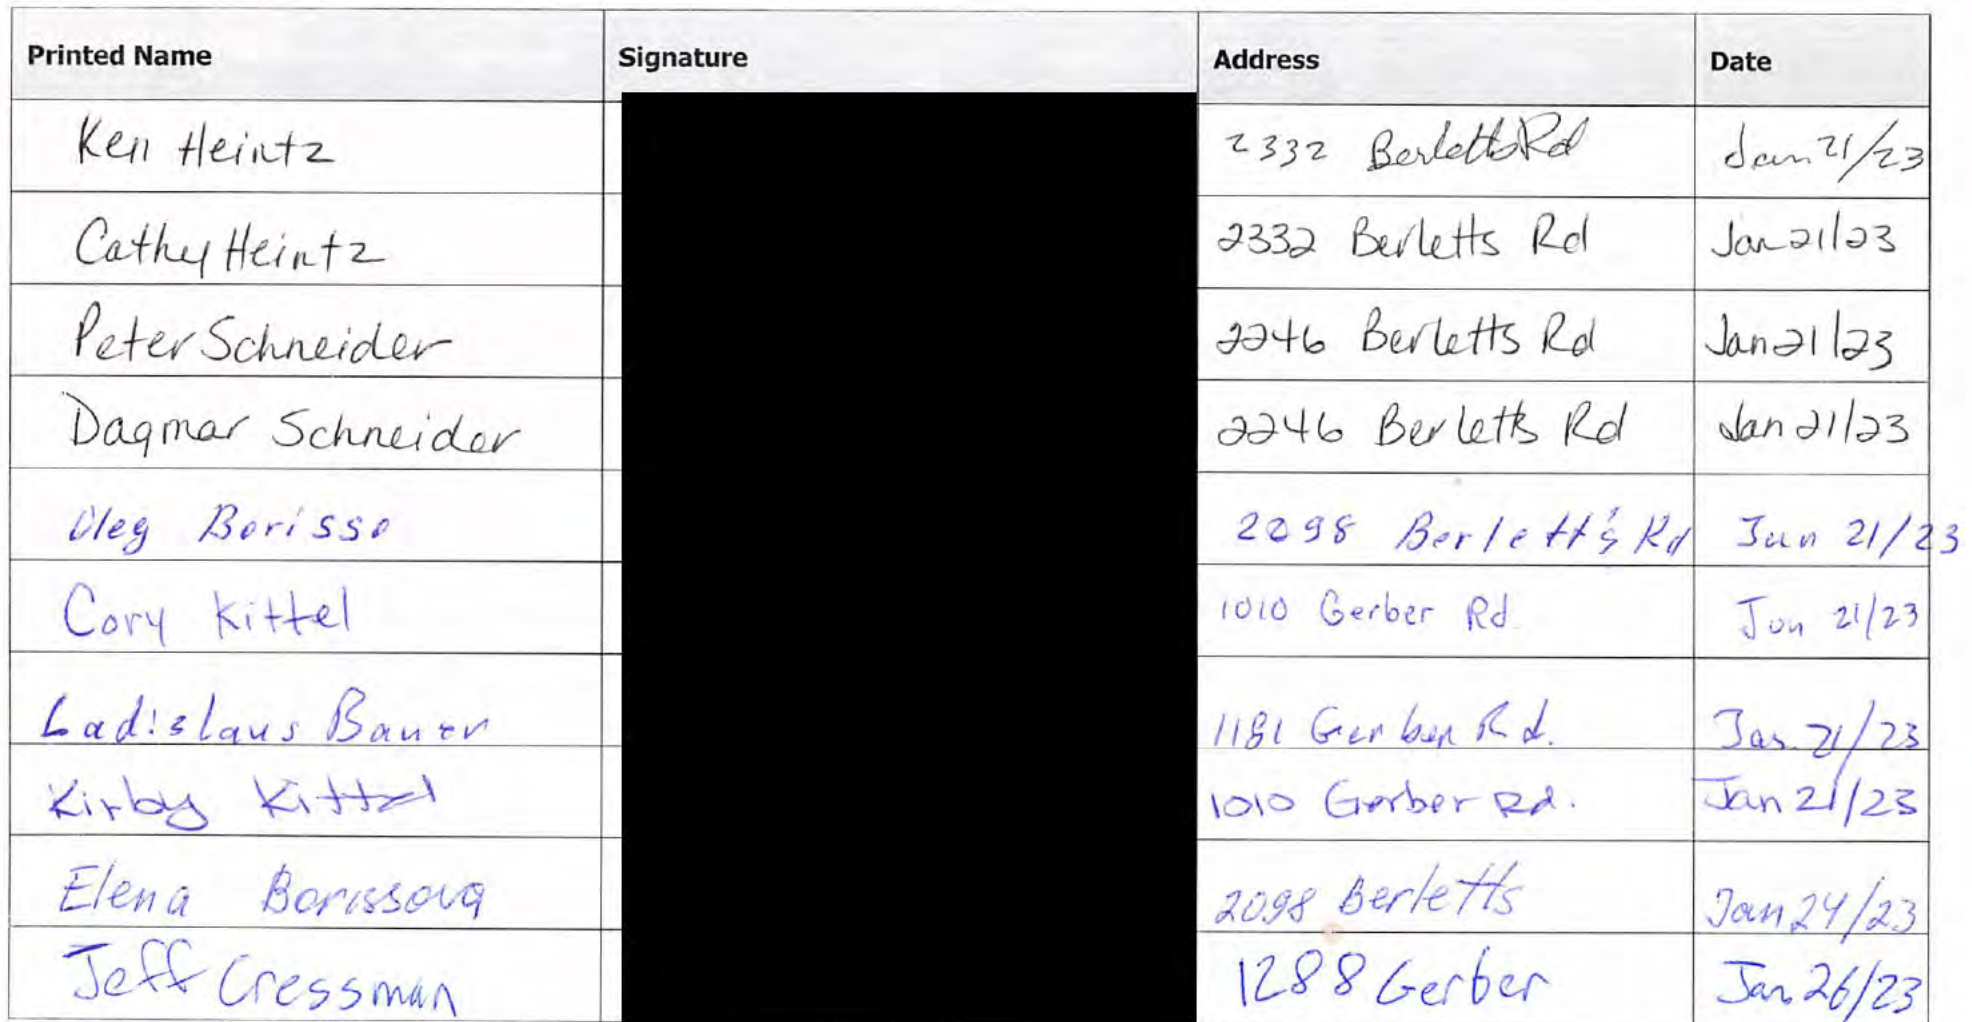 Printed Name Signature Address Date
Ken Heintz 2332 Berletts Rd Jan 21/23
Cathy Heintz 2332 Berletts Rd Jan 21/23
Peter Schneider 2246 Berletts Rd Jan 21/23
Dagmar Schneider 2246 Berletts Rd Jan 21/23
Oleg Borisso 2098 Berlett's Rd Jan 21/23
Cory Kittel 1010 Gerber Rd Jan 21/23
Ladislaus Bauer 1181 Gerber Rd. Jan. 21/23
Kirby Kittel 1010 Gerber Rd. Jan 21/23
Elena Borissova 2098 Berletts Jan 24/23
Jeff Cressman 1288 Gerber Jan 26/23